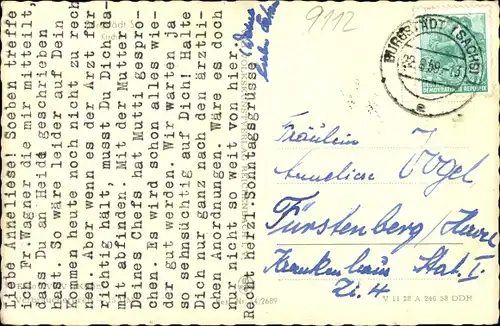 Liebe Anneliese! Soeben treffe
ich Fr.Wagner die mir mitteilt,
dass Du an Heide geschrieben
hast. So wäre leider auf Dein
Kommen heute noch nicht zu rech
nen. Aber wenn es der Arzt für
richtig hält, musst Du Dich da-
mit abfinden. Mit der Mutter
Deines Chefs hat Mutti gespro-
chen. Es wird schon alles wie-
der gut werden. Wir warten ja
so sehnsüchtig auf Dich! Halte
Dich nur ganz nach den ärztli-
chen Anordnungen. Wäre es doch
nur nicht so weit von hier.
Recht herzl. Sonntagsgrüsse
9112
BURGSTÄDT (SACHS)
59
DEUTSCHE DEMOKRATISCHE REPUBLIK
Fräulein
Anneliese Vogel
Fürstenberg/Havel
Krankenhaus Stat. I
Zi. 4
V 11 28 A 246 58 DDR
4/2689